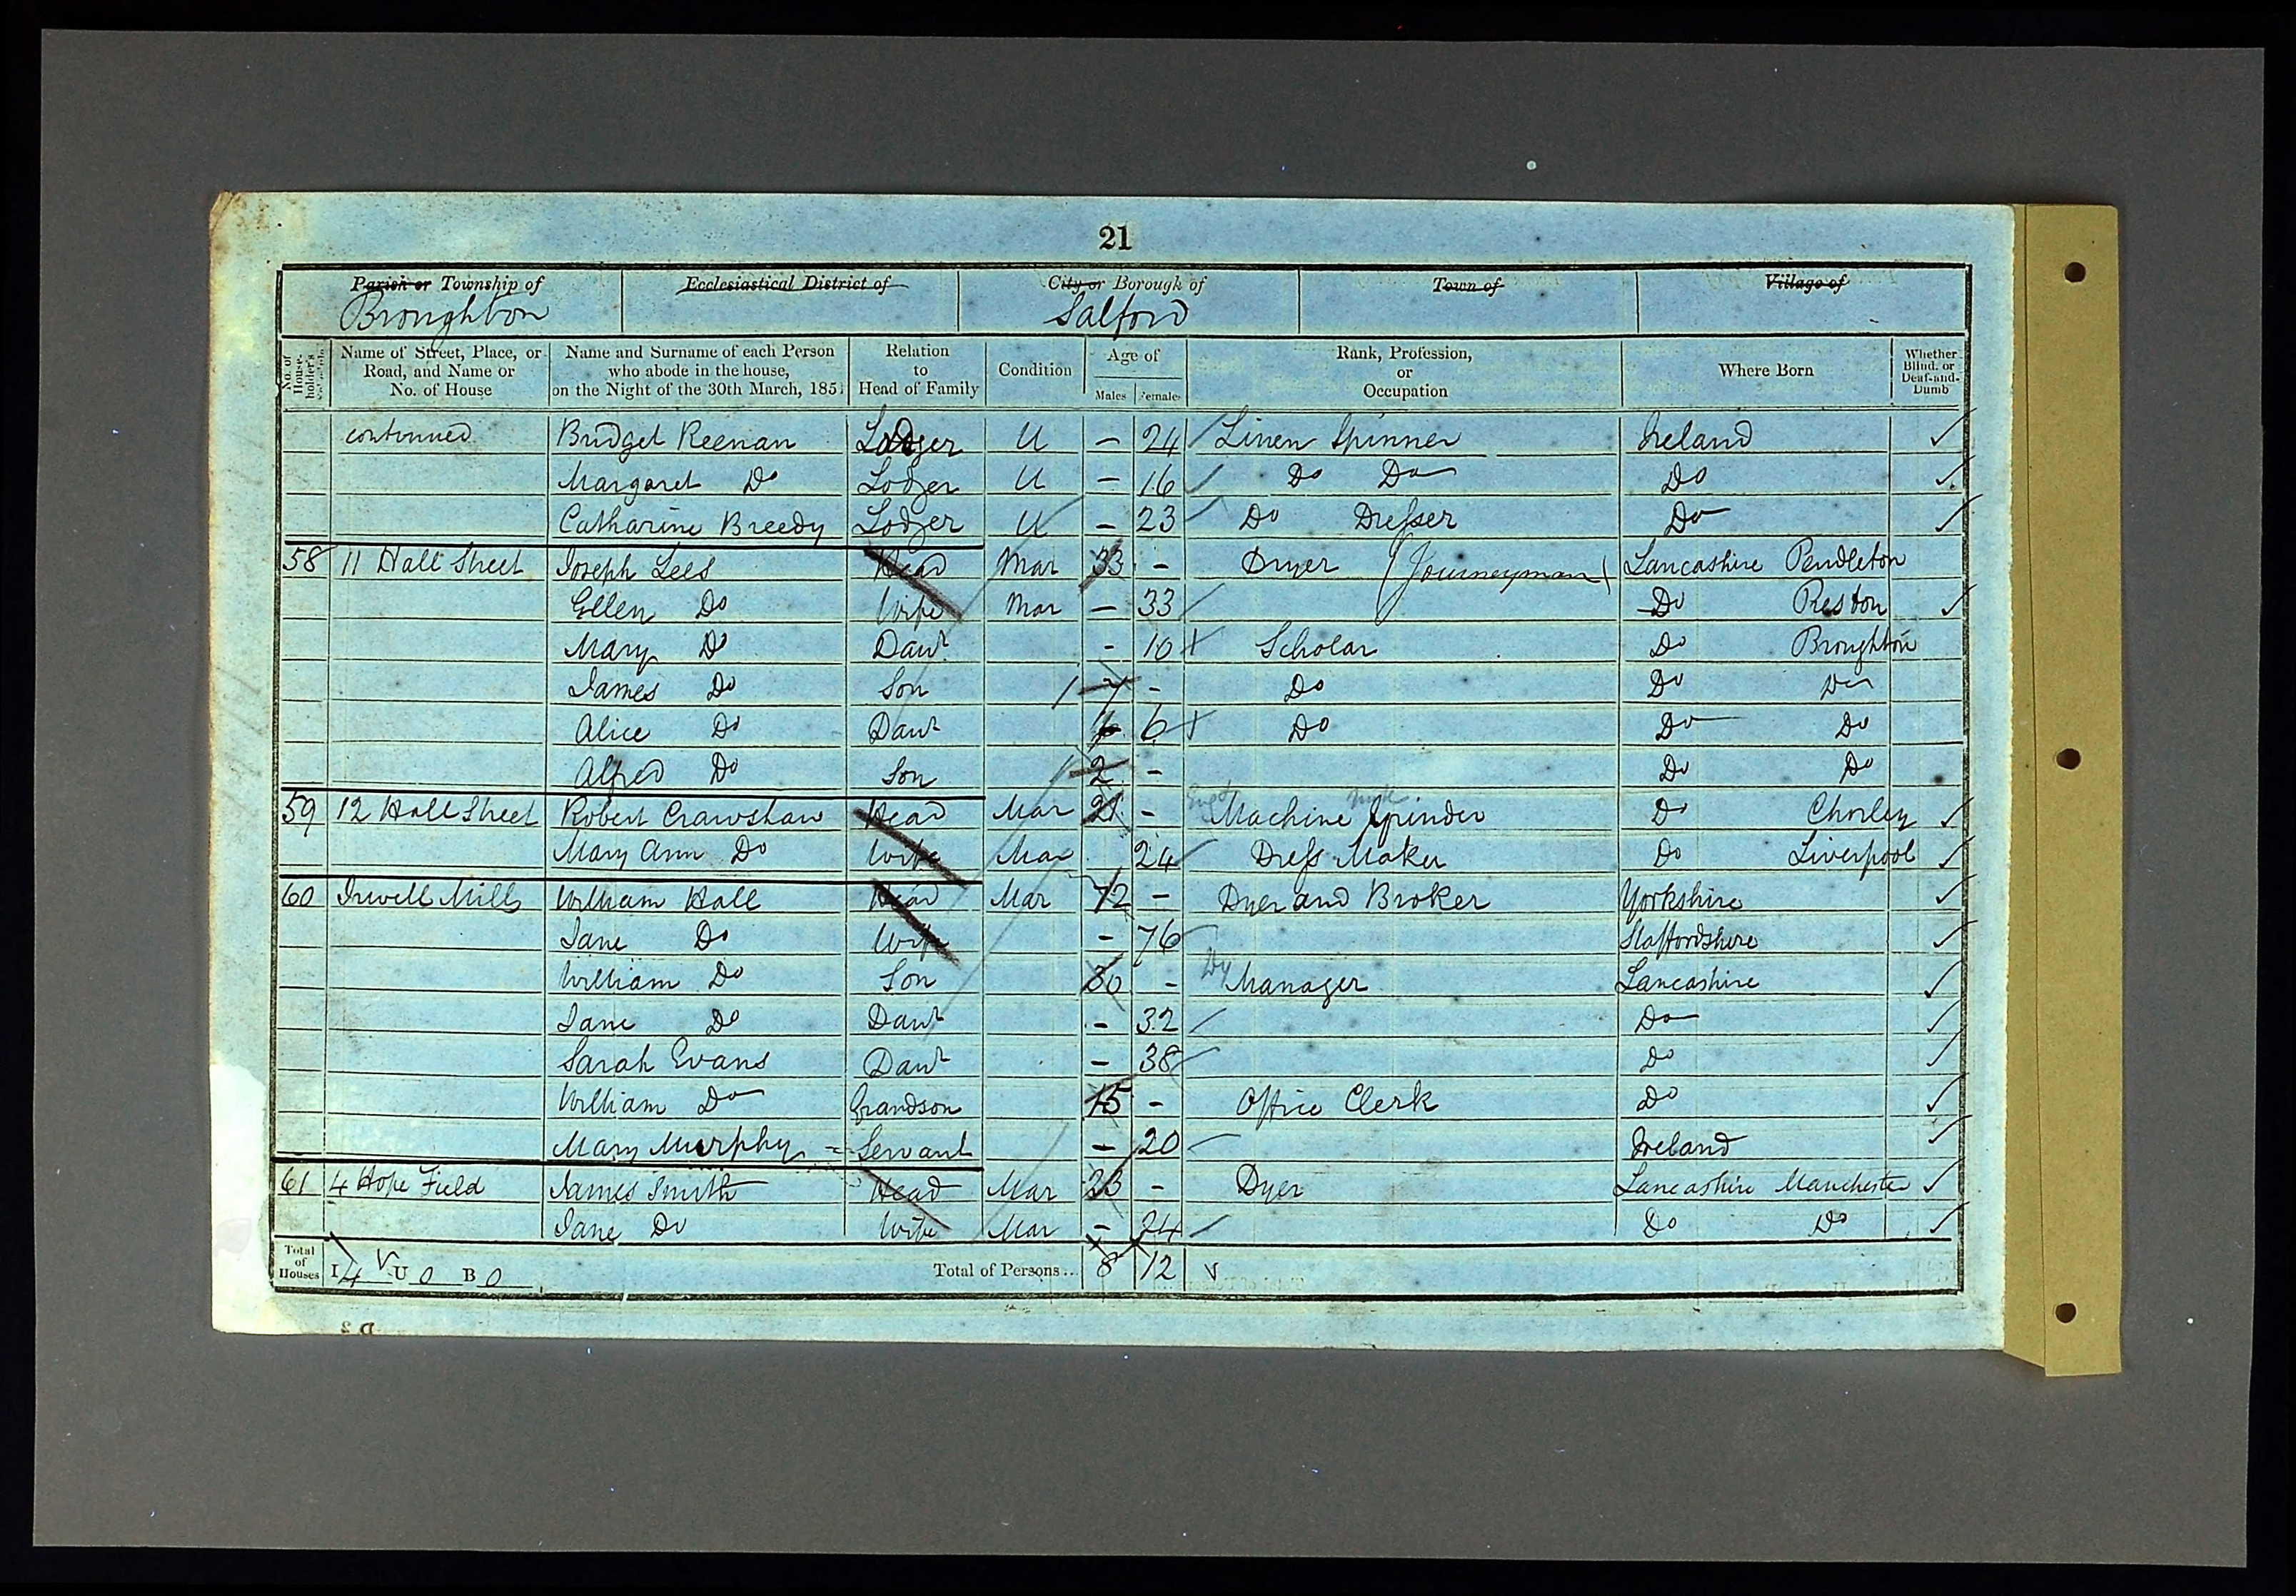 21
Parish or Township of Ecclesiastical District of City or Borough of Town of Village of
Broughton Salford
No. of House-holder's Schedule Name of Street, Place, or Road, and Name or No. of House Name and Surname of each Person who abode in the house, on the Night of the 30th March, 1851 Relation to Head of Family Condition Age of Males Females Rank, Profession, or Occupation Where Born Whether Blind, or Deaf-and-Dumb
continued Bridget Keenan Lodger U – 24 Linen Spinner Ireland
Margaret Do Lodger U – 16 Do Do Do
Catharine Breedy Lodger U – 23 Do Dresser Do
58 11 Hall Street Joseph Lees Head Mar 33 – Dryer (Journeyman) Lancashire Pendleton
Ellen Do Wife Mar – 33 Do Reston
Mary Do Daur – 10 Scholar Do Broughton
James Do Son 7 – Do Do Do
Alice Do Daur 6 Do Do Do
Alfred Do Son 2 – Do Do
59 12 Hall Street Robert Crawshaw Head Mar 21 – Machine Grinder Do Chorley
Mary Ann Do Wife Mar 24 Dress Maker Do Liverpool
60 Irwell Mills William Hall Head Mar 72 – Dyer and Broker Yorkshire
Jane Do Wife – 76 Staffordshire
William Do Son 30 – Manager Lancashire
Jane Do Daur – 32 Do
Sarah Evans Daur – 38 Do
William Do Grandson 15 – Office Clerk Do
Mary Murphy Servant – 20 Ireland
61 4 Hope Field James Smith Head Mar 23 – Dyer Lancashire Manchester
Jane Do Wife Mar – 24 Do Do
Total of Houses I 4 U 0 B 0 Total of Persons.. 8 12